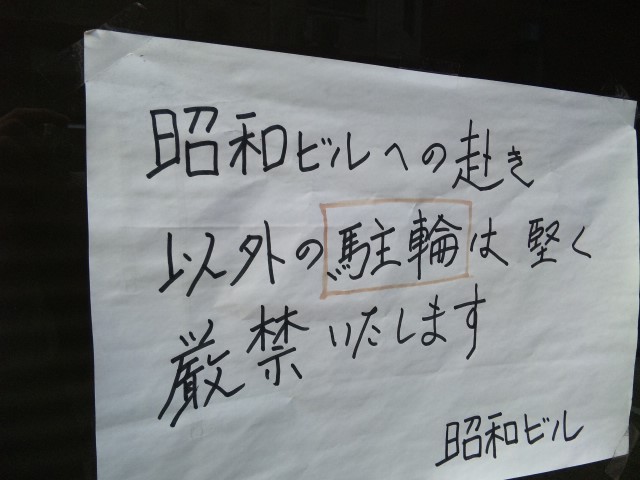 昭和ビルへの赴き
以外の駐輪は堅く
厳禁いたします
昭和ビル